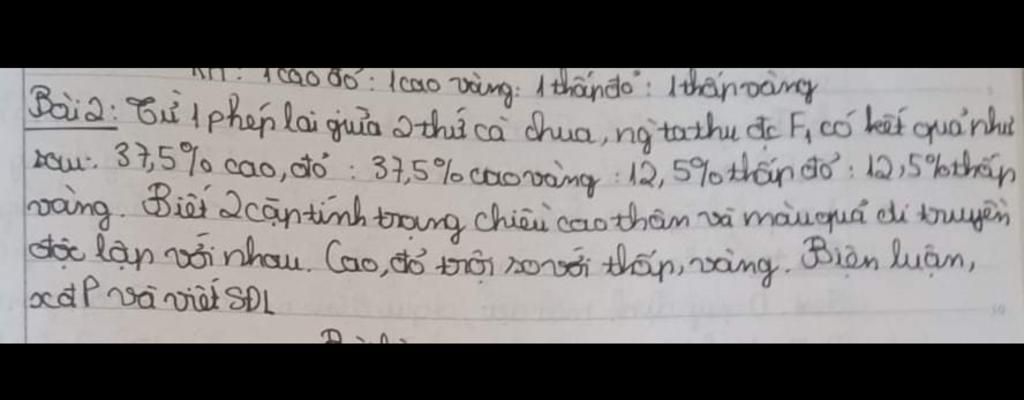 KH: 1 cao đỏ : 1 cao vàng : 1 thấp đỏ : 1 thấp vàng
Bài 2: Từ 1 phép lai giữa 2 thứ cà chua, ng ta thu đc F1 có kết quả như
sau: 37,5% cao, đỏ : 37,5% cao vàng : 12,5% thấp đỏ : 12,5% thấp
vàng. Biết 2 cặp tính trạng chiều cao thân và màu quả di truyền
độc lập với nhau. Cao, đỏ trội so với thấp, vàng. Biện luận,
xđ P và viết SĐL